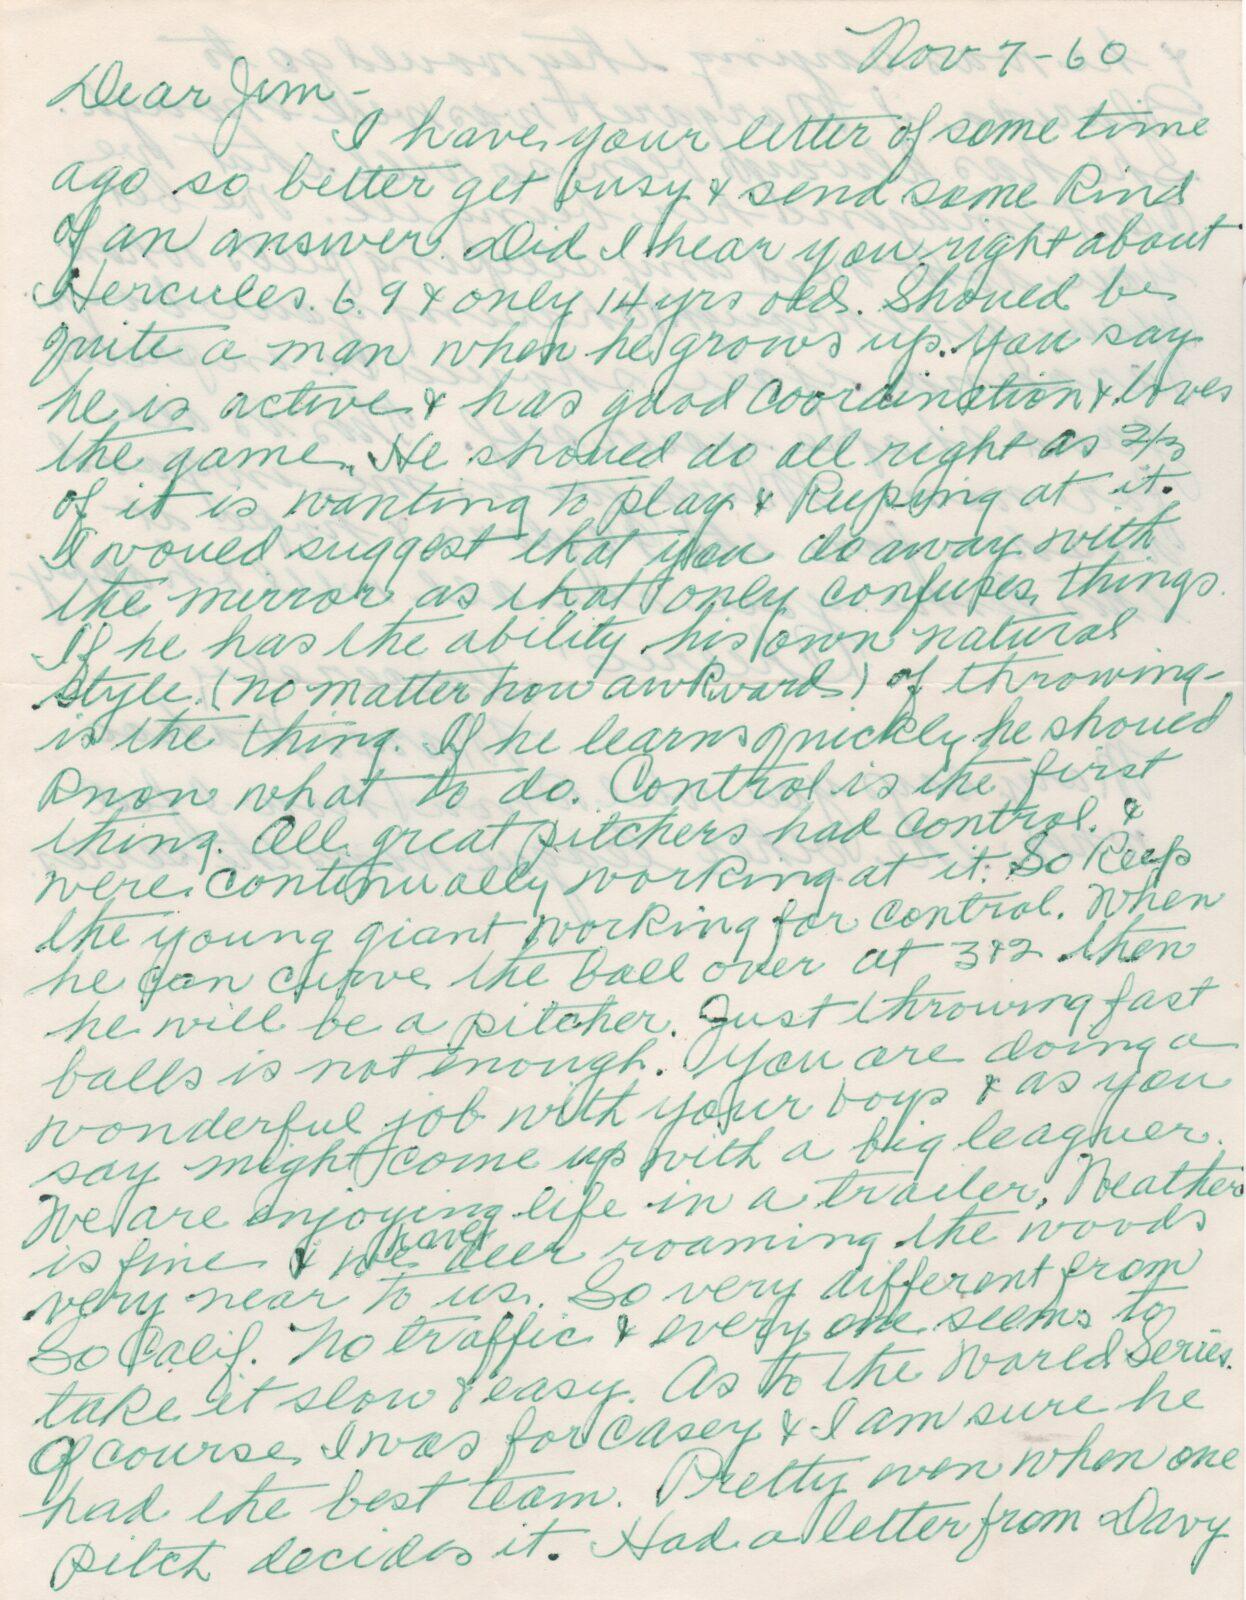 Nov 7-60
Dear Jim-
I have your letter of some time
ago so better get busy & send some kind
of an answer. Did I hear you right about
Hercules. 6.9 & only 14 yrs old. Should be
quite a man when he grows up. You say
he is active & has good coordination & loves
the game. He should do all right as 2/3
of it is wanting to play & keeping at it.
I would suggest that you do away with
the mirror as that only confuses things.
If he has the ability his own natural
style (no matter how awkward) of throwing-
is the thing. If he learns quickly he should
know what to do. Control is the first
thing. All great pitchers had control. &
were continually working at it. So keep
the young giant working for control. When
he can curve the ball over at 3&2 then
he will be a pitcher. Just throwing fast
balls is not enough. You are doing a
wonderful job with your boys & as you
say might come up with a big leaguer.
We are enjoying life in a trailer. Weather
is fine & we have deer roaming the woods
very near to us. So very different from
So Calif. No traffic & every one seems to
take it slow & easy. As to the World Series.
Of course I was for Casey & I am sure he
had the best team. Pretty even when one
pitch decides it. Had a letter from Davy